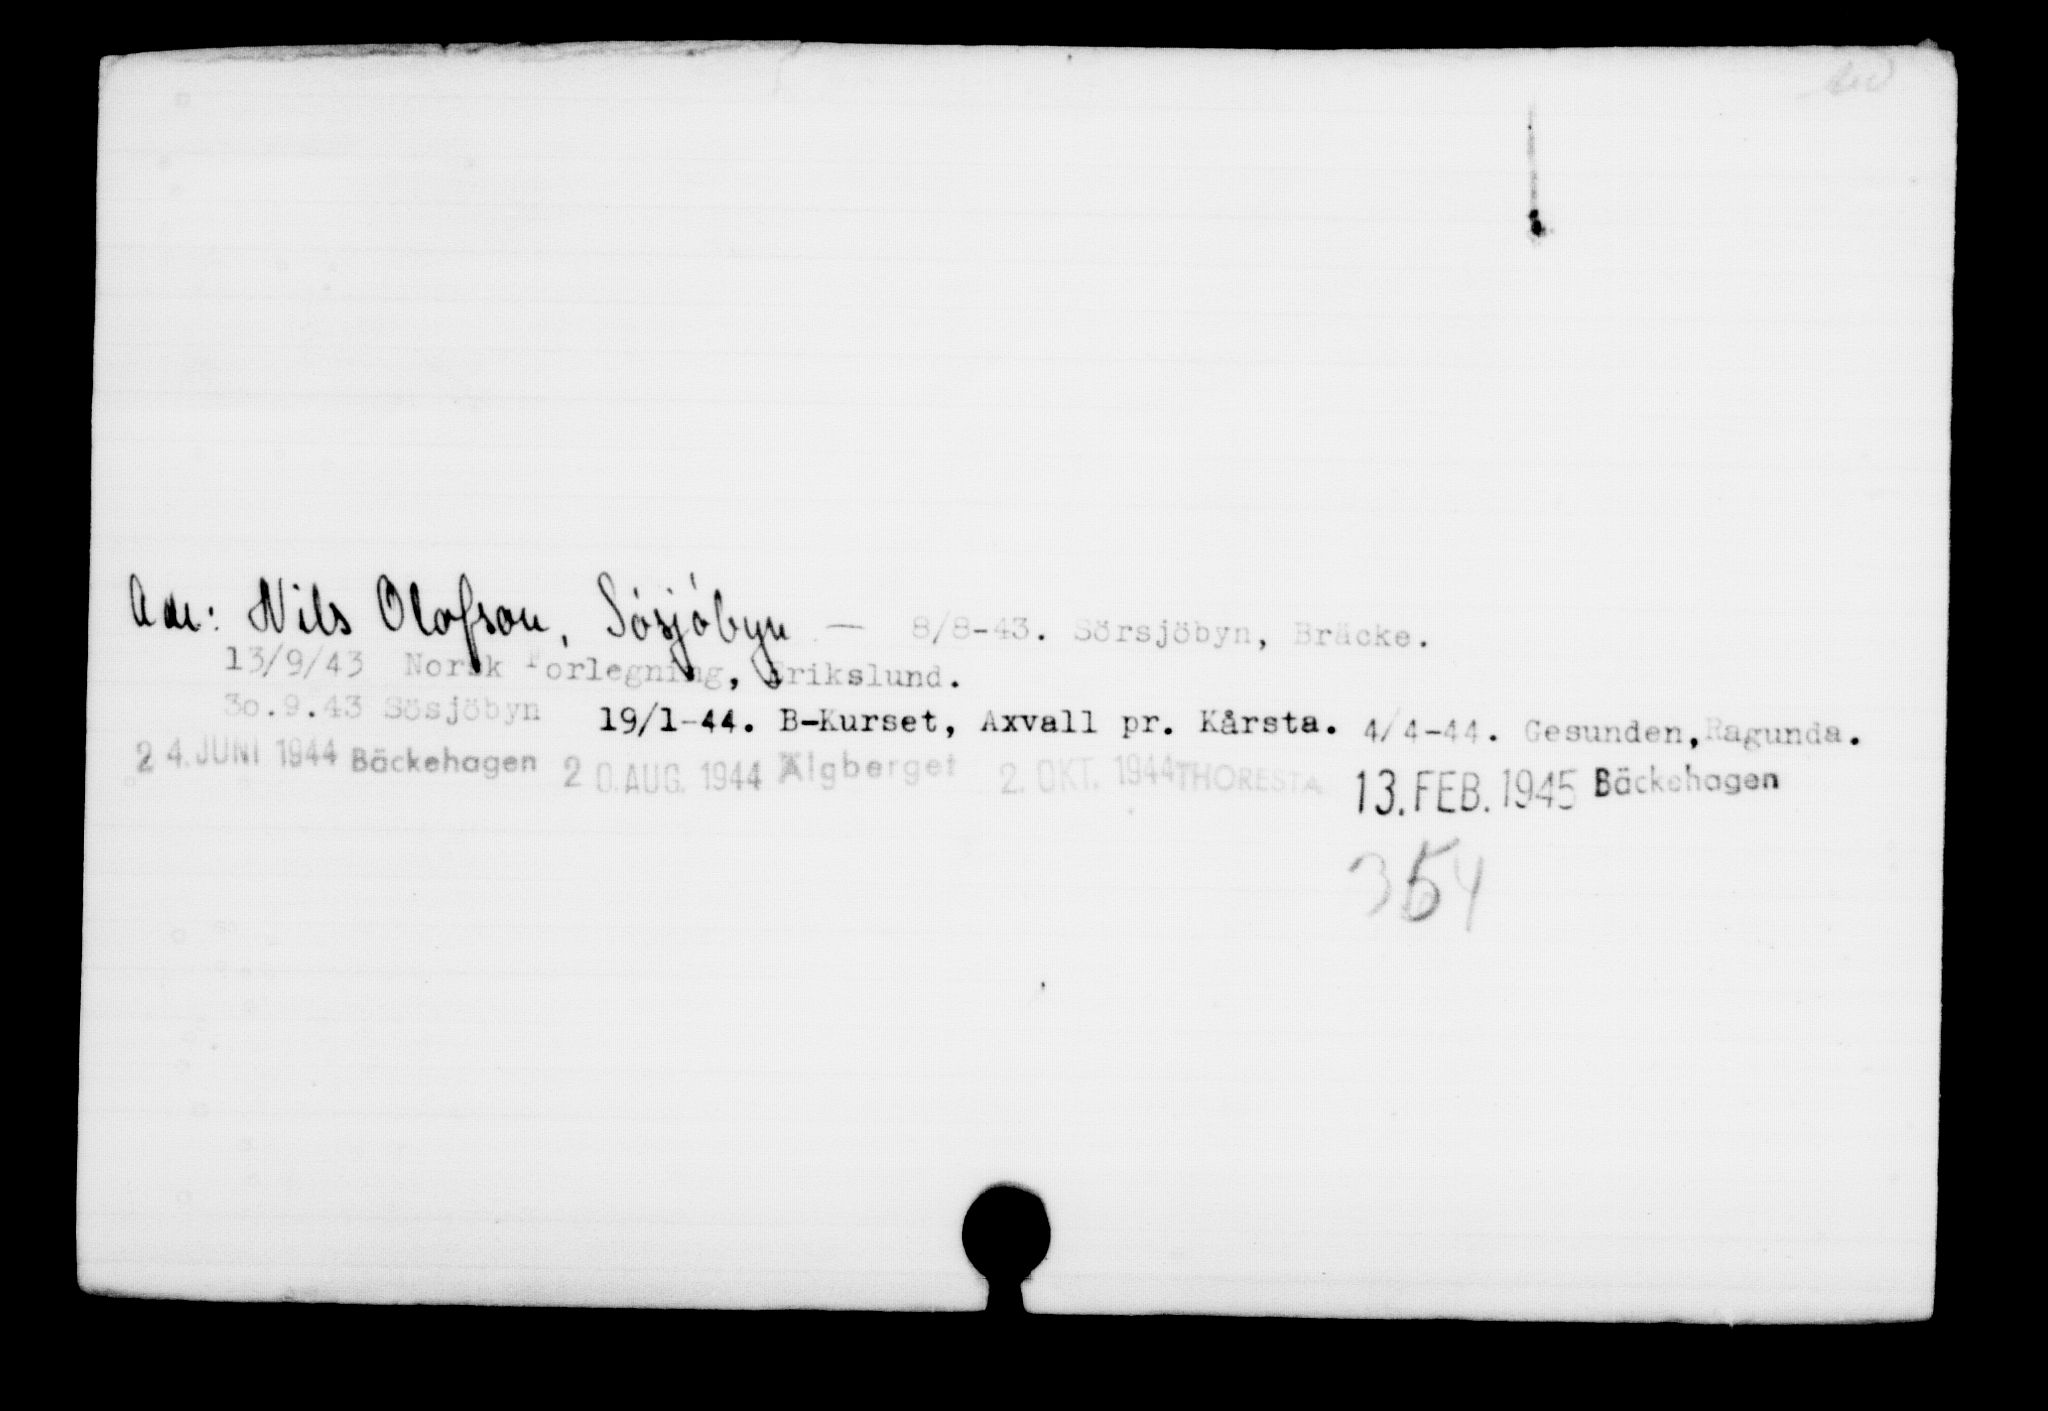 Adr: Nils Olofson, Sösjöbyn — 8/8-43. Sörsjöbyn, Bräcke.
13/9/43 Norsk Forlegning, Erikslund.
30.9.43 Sösjöbyn 19/1-44. B-Kurset, Axvall pr. Kårsta. 4/4-44. Gesunden, Ragunda.
24. JUNI 1944 Bäckehagen 20. AUG. 1944 Älgberget 2. OKT. 1944 THORESTA 13. FEB. 1945 Bäckehagen
354